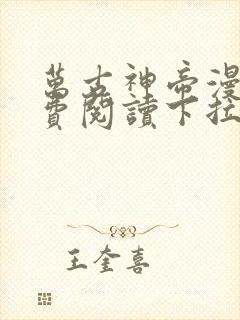 萬古神帝漫
費閱讀下拉
王奎喜